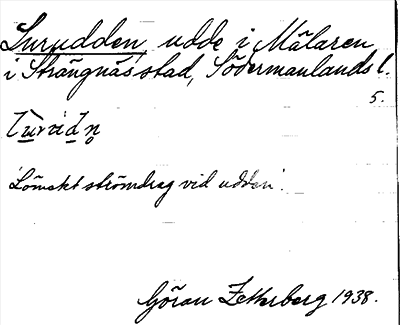 Lurudden, udde i Mälaren
i Strängnäs stad, Södermanlands l.
5.
'Lömskt strömdrag vid udden'.
Göran Zetterberg 1938.